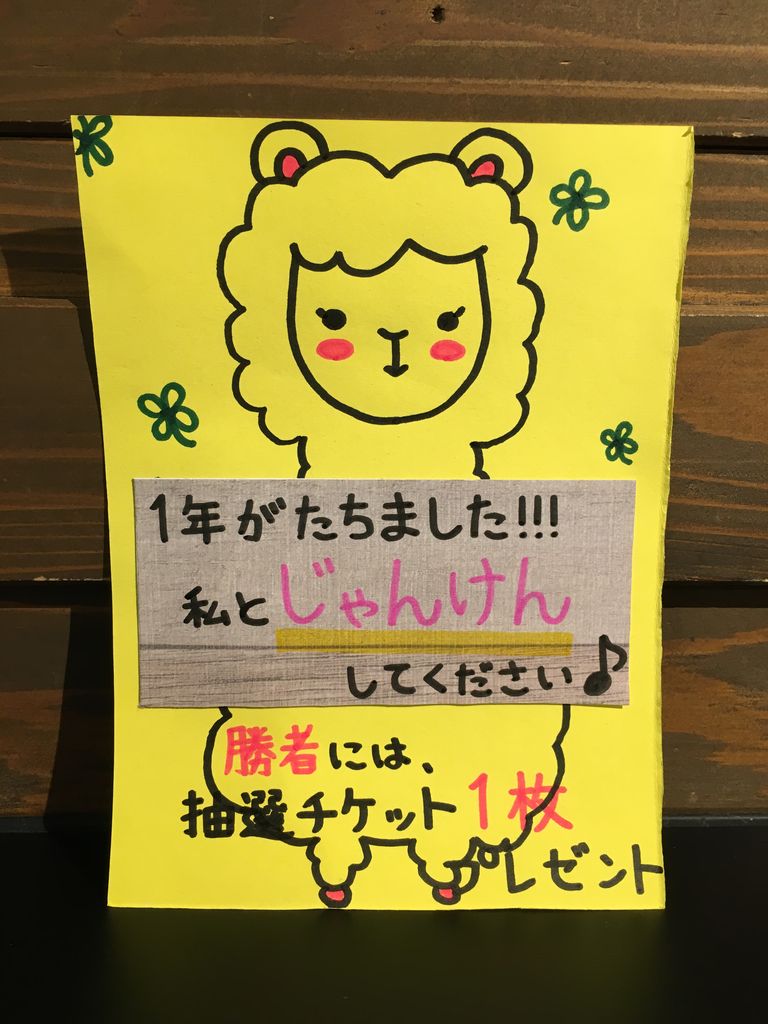 1年がたちました!!!
私とじゃんけん
してください♪
勝者には、
抽選チケット1枚
プレゼント